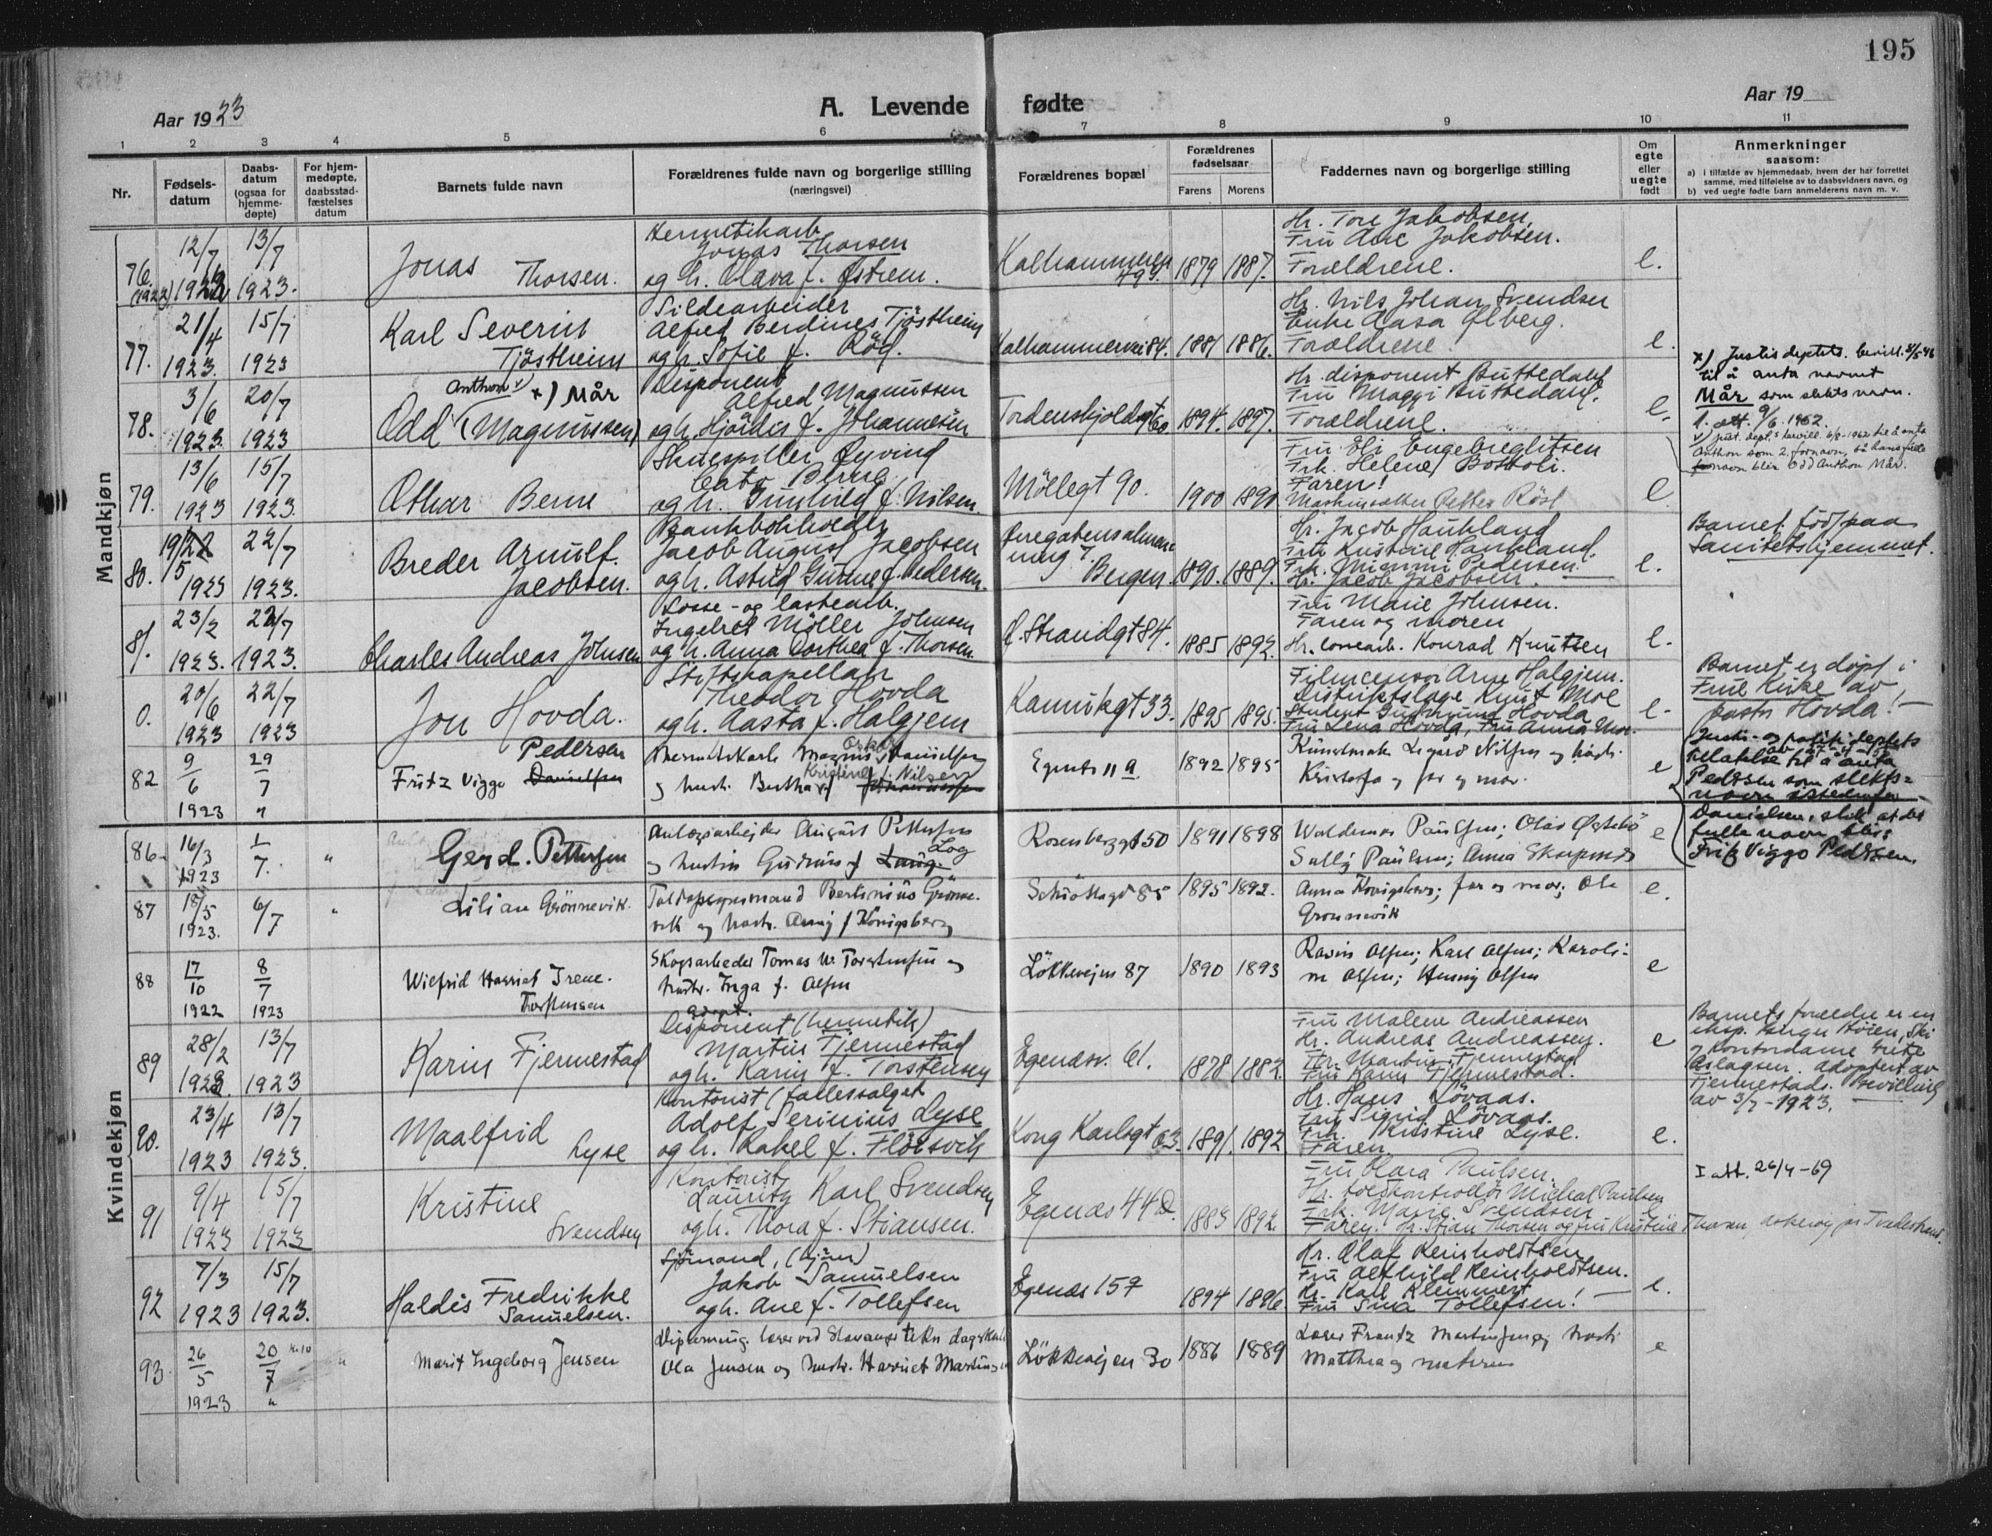 195
Aar 1923
A. Levende fødte
Aar 19
1 2 3 4 5 6 7 8 9 10 11
Nr.
Fødsels-
datum
Daabs-
datum
(ogsaa for
hjemme-
døpte)
For hjem-
medøpte,
daabsstad-
fæstelses
datum
Barnets fulde navn
Forældrenes fulde navn og borgerlige stilling
(næringsvei)
Forældrenes bopæl
Forældrenes
fødselsaar
Farens Morens
Faddernes navn og borgerlige stilling
Om
egte
eller
uegte
født
Anmerkninger
saasom:
a) i tilfælde av hjemmedaab, hvem der har forrettet
samme, med tilføielse av to daabsvidners navn, og
b) ved uegte fødte barn anmelderens navn m. v.
Mandkjøn
76.
(1922)
12/7
13/7
1923.
Jonas
Thorsen.
Hermetikarb.
Jonas Thorsen
og h. Olava f. Østrem.
Kalhammeren
49
1879 1887.
Hr. Tore Jakobsen,
Fru Ane Jakobsen.
Forældrene.
e.
77.
21/4
1923.
15/7
1923
Karl Severin
Tjøstheim
Sildearbeider
Alfred Berdines Tjøstheim
og h. Sofie f. Rød.
Kalhammervei 84.
1881 1886.
Hr. Nils Johan Svendsen
Enke Aasa Ølberg.
Forældrene.
e.
78.
3/6
1923.
20/7
1923
Anthon v) x) Mår
Odd (Magnussen)
Disponent
Alfred Magnussen
og h. Hjördis f. Johannesen
Tordenskjoldsgt 60
1894. 1897.
Hr. disponent Buttedahl
Fru Maggi Buttedahl.
Forældrene.
e.
x) Justisdeptets. bevill. 3/5-46
til å anta navnet
Mår som slektsnavn.
1. att. 9/6. 1962.
v) just. dept.s bevill. 6/8-1962 til å anta
Anthon som 2. fornavn, så hans fulle
navn blir Odd Anthon Mår.
79.
13/6
1923
15/7
1923.
Othar Berne
Skuespiller Øyvind
Cato Berne
og h. Gunhild f. Nilsen.
Møllegt 90.
1900 1890
Fru Eli Engebregtsen
Frk. Helene Bottoli.
Faren!
e
80.
19/5
1923
22/7
1923.
Breder Arnulf
Jacobsen.
Bankbokholder
Jacob August Jacobsen
og h. Astrid Gunne f. Pedersen.
Bergen
1890. 1889.
Hr. Jacob Haukland
Fru Kristine Haukland.
Frk. Mimmi Pedersen!
Hr. Jacob Jacobsen.
e.
Barnet født paa
Sanitetshjemmet.
81.
23/2
1923.
22/7
1923.
Charles Andreas Johnsen
Losse- og lastearb.
Ingebret Møller Johnsen
og h. Anna Dorthea f. Thorsen.
Ø. Strandgt 84.
1885 1892.
Fru Marie Johnsen.
Faren og moren
Hr. lossearb. Konrad Knutsen
e.
0.
20/6
1923
22/7
1923
Jon Hovda.
Stiftskapellan
Theodor Hovda
og h. Aasta f. Halgjem
Kannikgt 33.
1895 1895.
Filmcensor Arne Halgjem.
Distriktslæge Knut Moe
Student Gudrun Hovda
Fru Lena Hovda, Fru Anna Moe.
e.
Barnet er døpt i
Frue Kirke av
pastor Hovda!
82
9/6
1923
29/7
"
Pedersen
Fritz Viggo Danielsen
Hermetikarb. Magnus Oskar Danielsen
og hustr. Bertha Kristine f. Nilsen
Egenes 11 a
1892 1895
Kunstmaler Sigurd Nilsen og hustr.
Kristofa og far og mor.
e
Justis- og politideptets
tillatelse til å anta
Pedersen som slekts-
navn istedenfor
Danielsen, slik at det
fulle navn blir
Fritz Viggo Pedersen.
Kvindekjøn
86
16/3
1923
1/7.
"
Gerd. Pettersen
Anlægsarbejder August Pettersen
og hustru Gudrun f. Log
Rosenberggt 50
1891 1898
Waldemar Paulsen; Olav Østebø
Sally Paulsen; Anna
e
87
18/5
1923.
6/7
"
Lilian Grønnevik.
Toldopsynsmand Bertinius Grønne-
vik og hustr. Anny f. Königsberg
85
1895 1892.
Anna Königsberg; far og mor; Ole
Grønnevik
e.
88
17/10
1922
8/7
1923
Wilfrid Harriet Irene.
Torstensen
Skogsarbeder Tomas W. Torstensen og
hustr. Inga f. Olsen
Løkkevejen 87
1890 1893
Rasm Olsen; Karl Olsen; Karoli-
ne Olsen; Henny Olsen
e
89
28/2
13/7
1923
Karin Fjermestad
adopt.
Disponent (hermetik)
Martin Fjermestad
og h. Karin f. Torstensen
Egenesv. 61.
1878 1882.
Fru Malene Andreassen
Hr. Andreas Andreassen.
Hr. Martin Fjermestad
Fru Karin Fjermestad.
e
Barnets foreldre er en
og Kontordame Grete
Aslagsen. Adoptert av
Fjermestads. Bevilling
av 3/7-1923.
90.
23/4
1923
13/7
1923.
Maalfrid
Lyse
Kontorist (fællessalget
Adolf Serinius Lyse
og h. Rakel f. Fløisvik
Kong Karlsgt 63.
1891. 1892
Hr. Hans Løvaas.
Fru Sigrid Løvaas.
Frk. Kristine Lyse.
Faren
e.
1 att. 26/4-69
91
9/4
1923
15/7
1923
Kristine
Svendsen
Kontorist
Lauritz Karl Svendsen
og h. Thora f. Stiansen.
Egenæs 44 D.
1883 1892.
Fru Clara Paulsen.
Hr. toldkontrollør Michal Paulsen
Frk. Marie Svendsen
Faren! Hr. Stian Thorsen og fru Kristine
e
92
7/3
1923
15/7
1923.
Haldis Fredrikke
Samuelsen.
Sjømand,
Jakob Samuelsen
og h. Ane f. Tollefsen
Egenæs 157
1894 1896
Hr. Olaf Reinholdtsen
Fru Alfhild Reinholdtsen.
Hr. Karl Klemmert
Fru Sina Tollefsen!
e.
93.
26/5
1923
20/7
"
Marit Ingeborg Jensen
Diploming. lærer ved Stavanger tekn. dagskole
Ola Jensen og hustr. Harriet
Løkkevejen 30
1886 1889
Lærer Frantz Martinsen og hustr.
Matthea og moteren
e